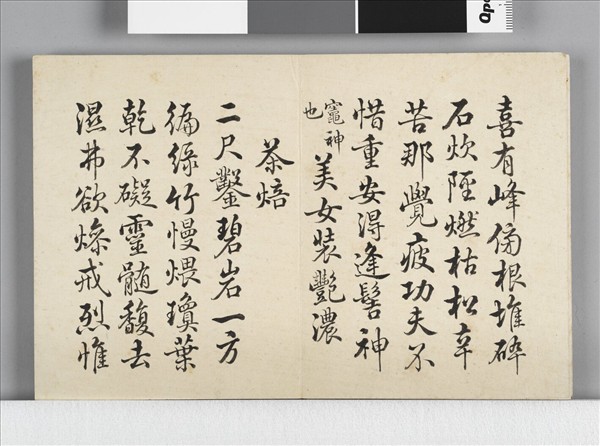 喜有峰傍根堆碎
石炊陘燃枯松辛
苦那覺疲功夫不
惜重安得逢髻神
竈神
也
美女裝艷濃
茶焙
二尺鑿碧岩一方
徧綠竹慢煨瓊葉
乾不礙靈髓馥去
濕弗欲燥戒烈惟
Qpc